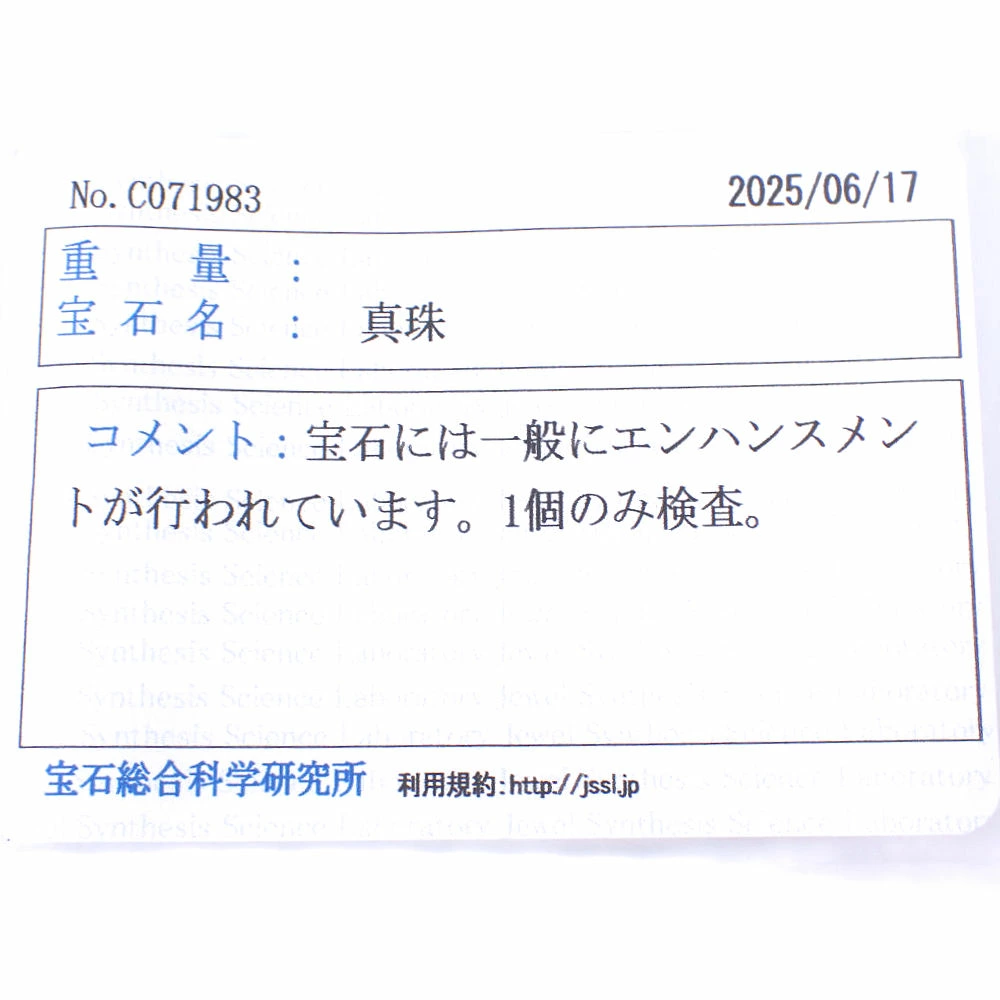 No. C071983
2025/06/17
重量：
宝石名： 真珠
コメント：宝石には一般にエンハンスメン
トが行われています。1個のみ検査。
宝石総合科学研究所 利用規約:http://jssl.jp
Synthesis Science Laboratory Jewel Synthesis Science Laboratory